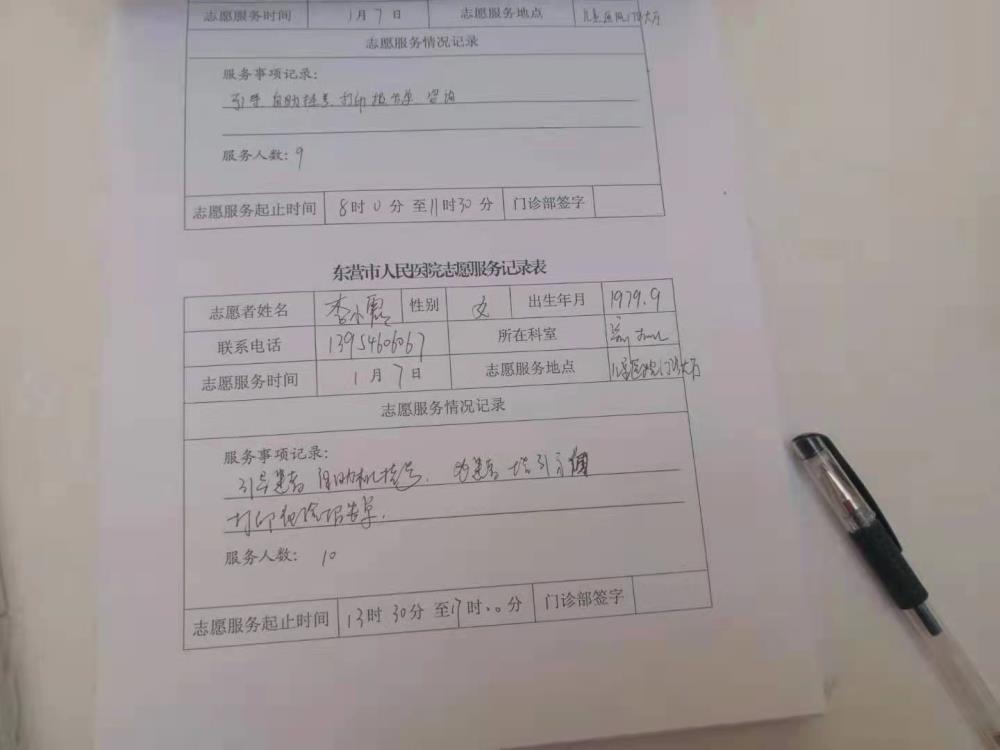 志愿服务时间 1月7日 志愿服务地点 儿童医院门诊大厅
志愿服务情况记录
服务事项记录:
引导 自助挂号 打印报告单 咨询
服务人数: 9
志愿服务起止时间 8时0分至11时30分 门诊部签字
东营市人民医院志愿服务记录表
志愿者姓名 李小霞 性别 女 出生年月 1979.9
联系电话 13954606067 所在科室
志愿服务时间 1月7日 志愿服务地点 儿童医院门诊大厅
志愿服务情况记录
服务事项记录:
引导患者自助机挂号. 为患者指引方向
打印化验报告单.
服务人数: 10
志愿服务起止时间 13时30分至17时00分 门诊部签字